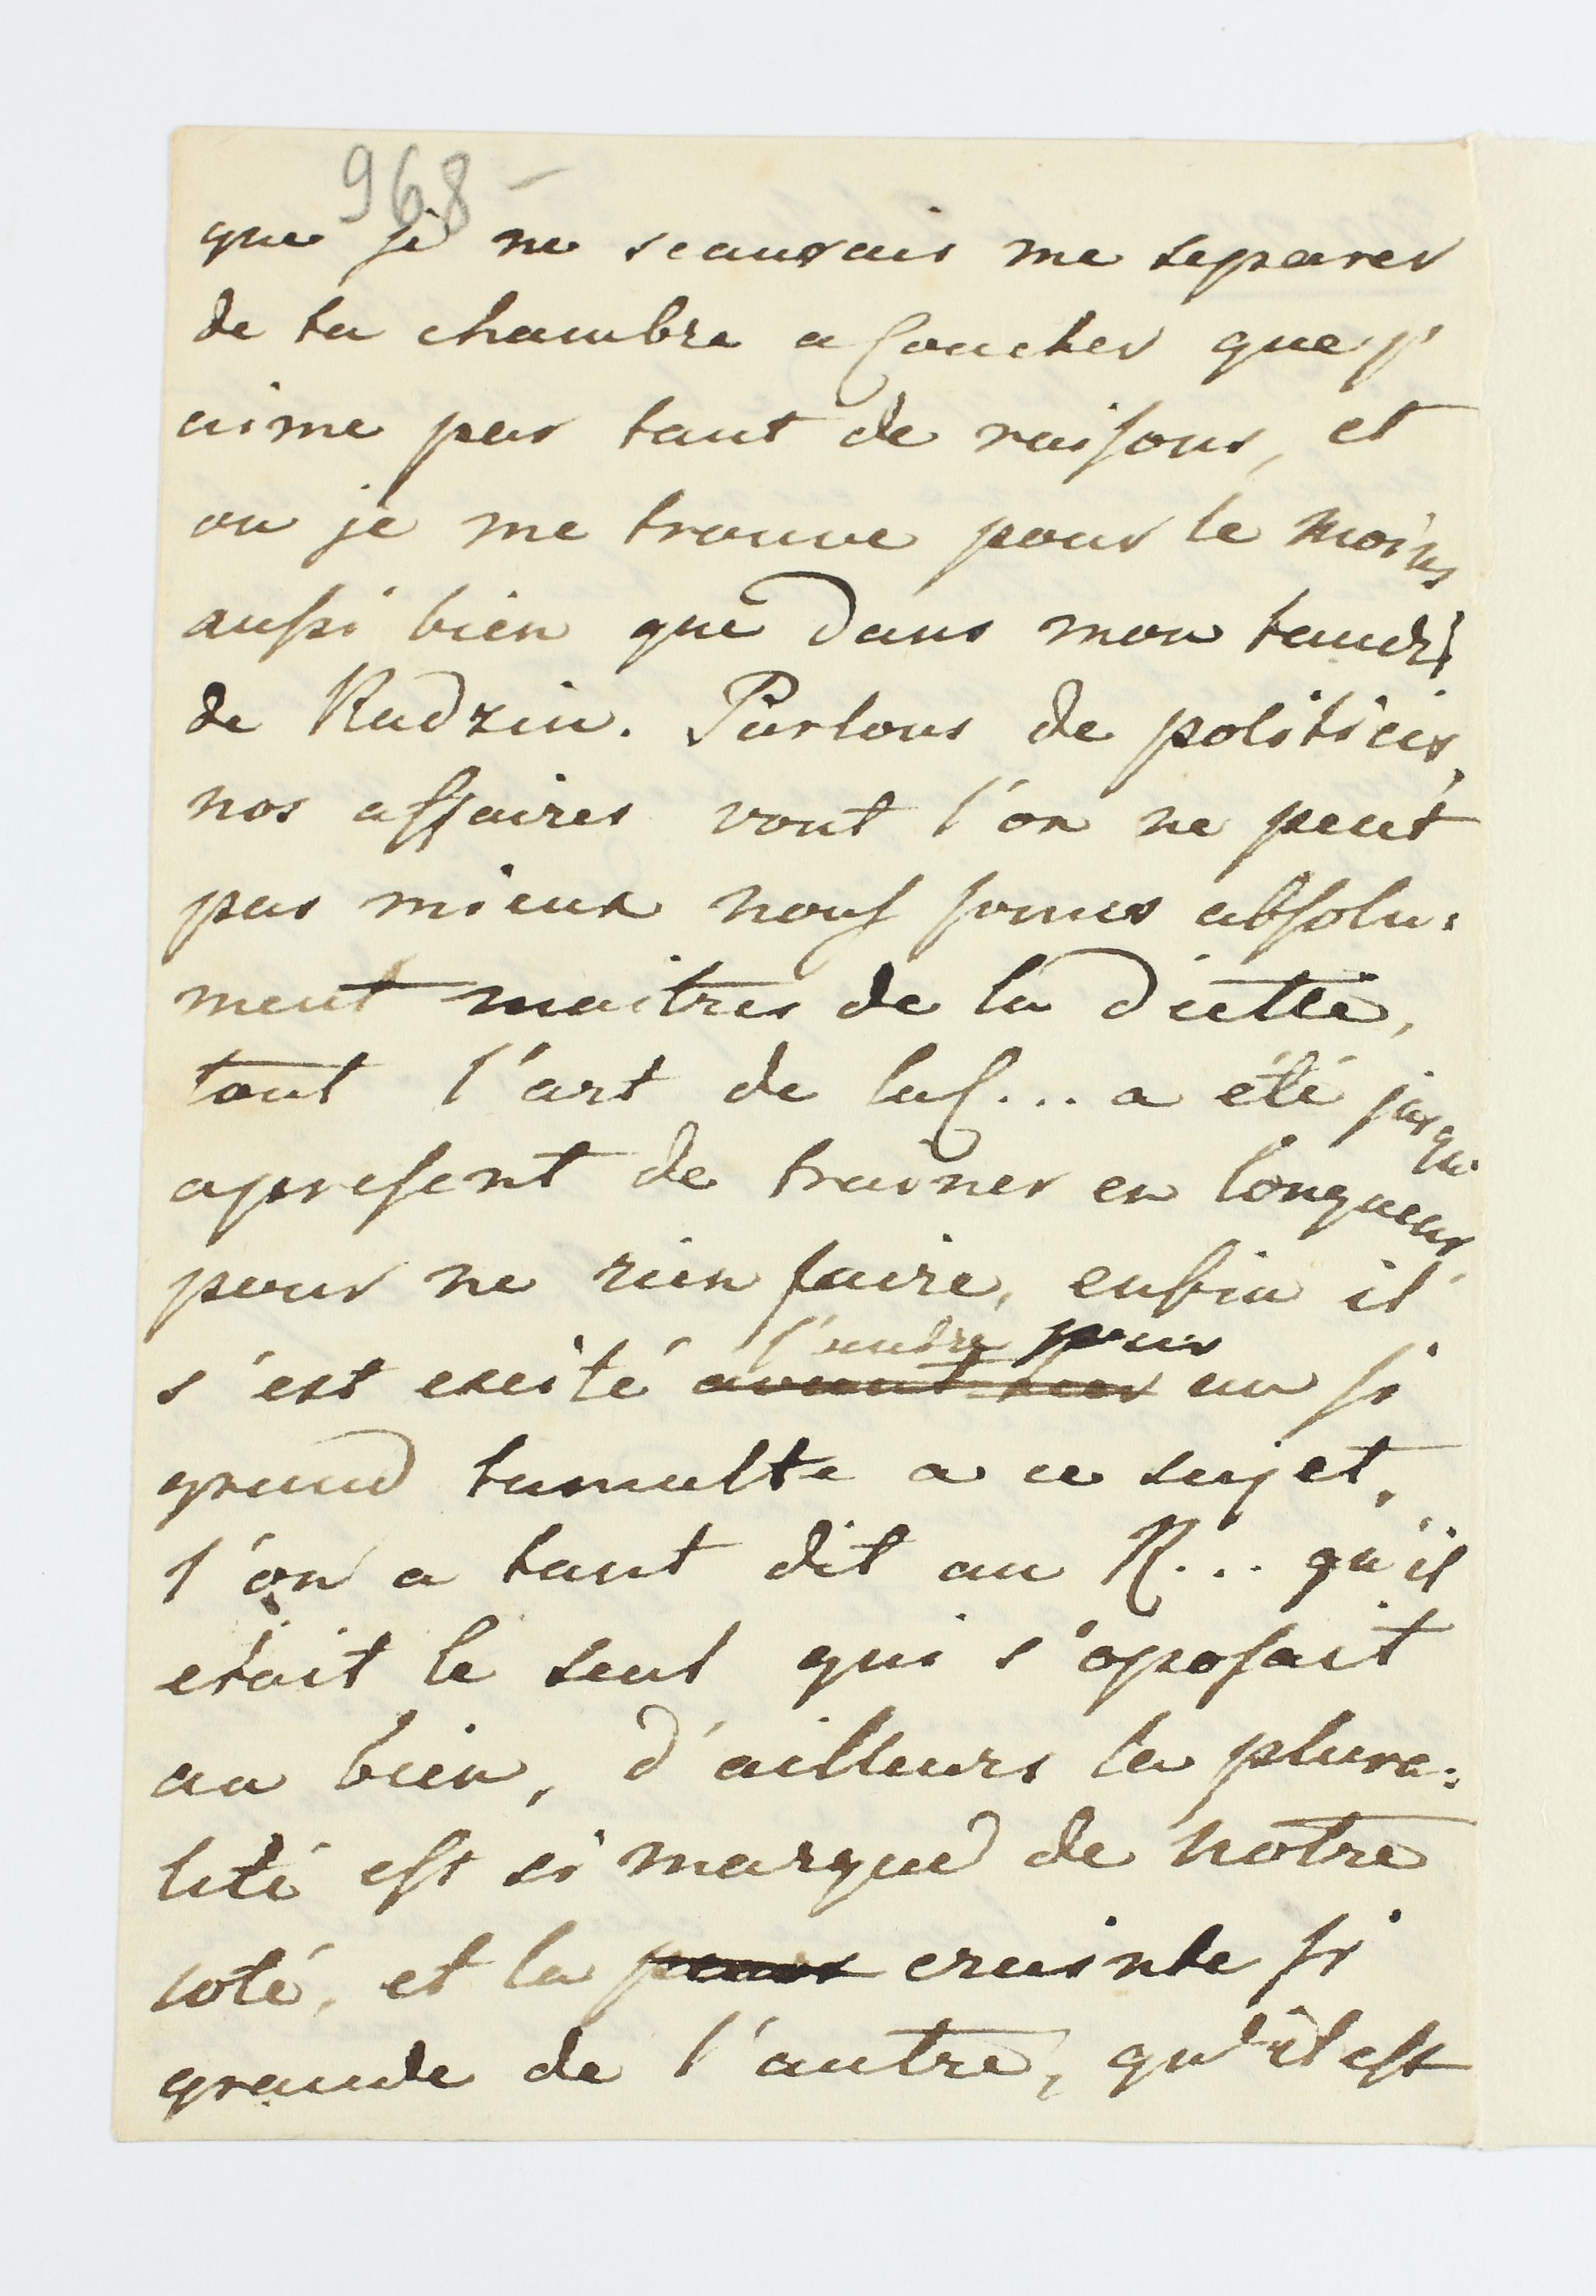 968 –
que je ne scaurais me separer
de ta chambre a coucher que j'
aime par tant de raisons, et
ou je me trouve pour le moins
aussi bien que dans mon taudi
de Radzin. Parlons de politicis,
nos affaires vont l'on ne peut
pas mieux nous somes absolu:
ment maitres de la diette,
tout l'art de luc... a été jusqu'
apresent de trainer en longueur,
pour ne rien faire, enfin il
l'autre jour
s'est excité avant hier un si
grand tumulte a ce sujet,
l'on a tant dit au R... qu'il
etait le seul qui s'oposait
au bien, d'ailleurs la plura:
lité est si marqué de notre
coté, et la peur crainte si
grande de l'autre, qu'il est